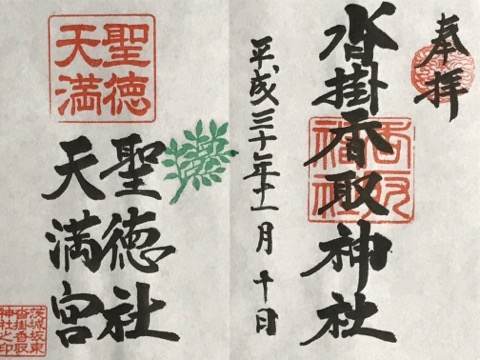 奉拝
沓掛香取神社
平成三十年十一月十日
聖徳
天満
聖徳社
天満宮
茨城坂東
沓掛香取
神社之印